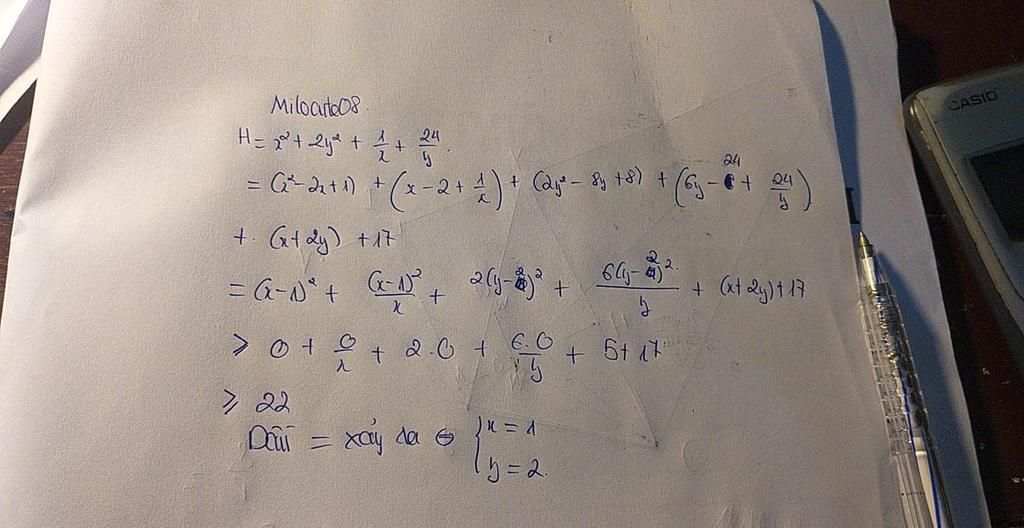 Miloarte08.
H = x² + 2y² + 1/x + 24/y.
= (x² - 2x + 1) + (x - 2 + 1/x) + (2y² - 8y + 8) + (6y - 24 + 24/y)
+ (x + 2y) + 17
= (x - 1)² + (x - 1)²/x + 2(y - 2)² + 6(y - 2)²/y + (x + 2y) + 17
≥ 0 + 0/x + 2.0 + 6.0/y + 5 + 17
≥ 22
Dấu = xảy ra ⇔ { x = 1
y = 2.
CASIO